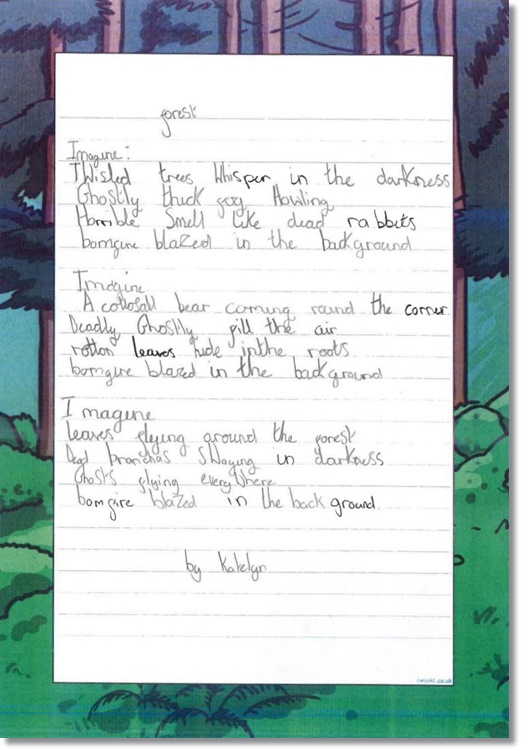 forest
Imagine:
Twisted trees Whisper in the darkness
Ghostly thick fog Howling
Horrible Smell like dead rabbits
bomfire blazed in the background
Imagine
A collosall bear coming round the corner.
Deadly Ghostly fill the air
rotton leaves hide inthe roots
bomfire blazed in the background
Imagine
leaves flying around the forest
Dead branchas Swaying in darkness
Ghosts flying everyWhere
bomfire blazed in the back ground.
by Katelyn